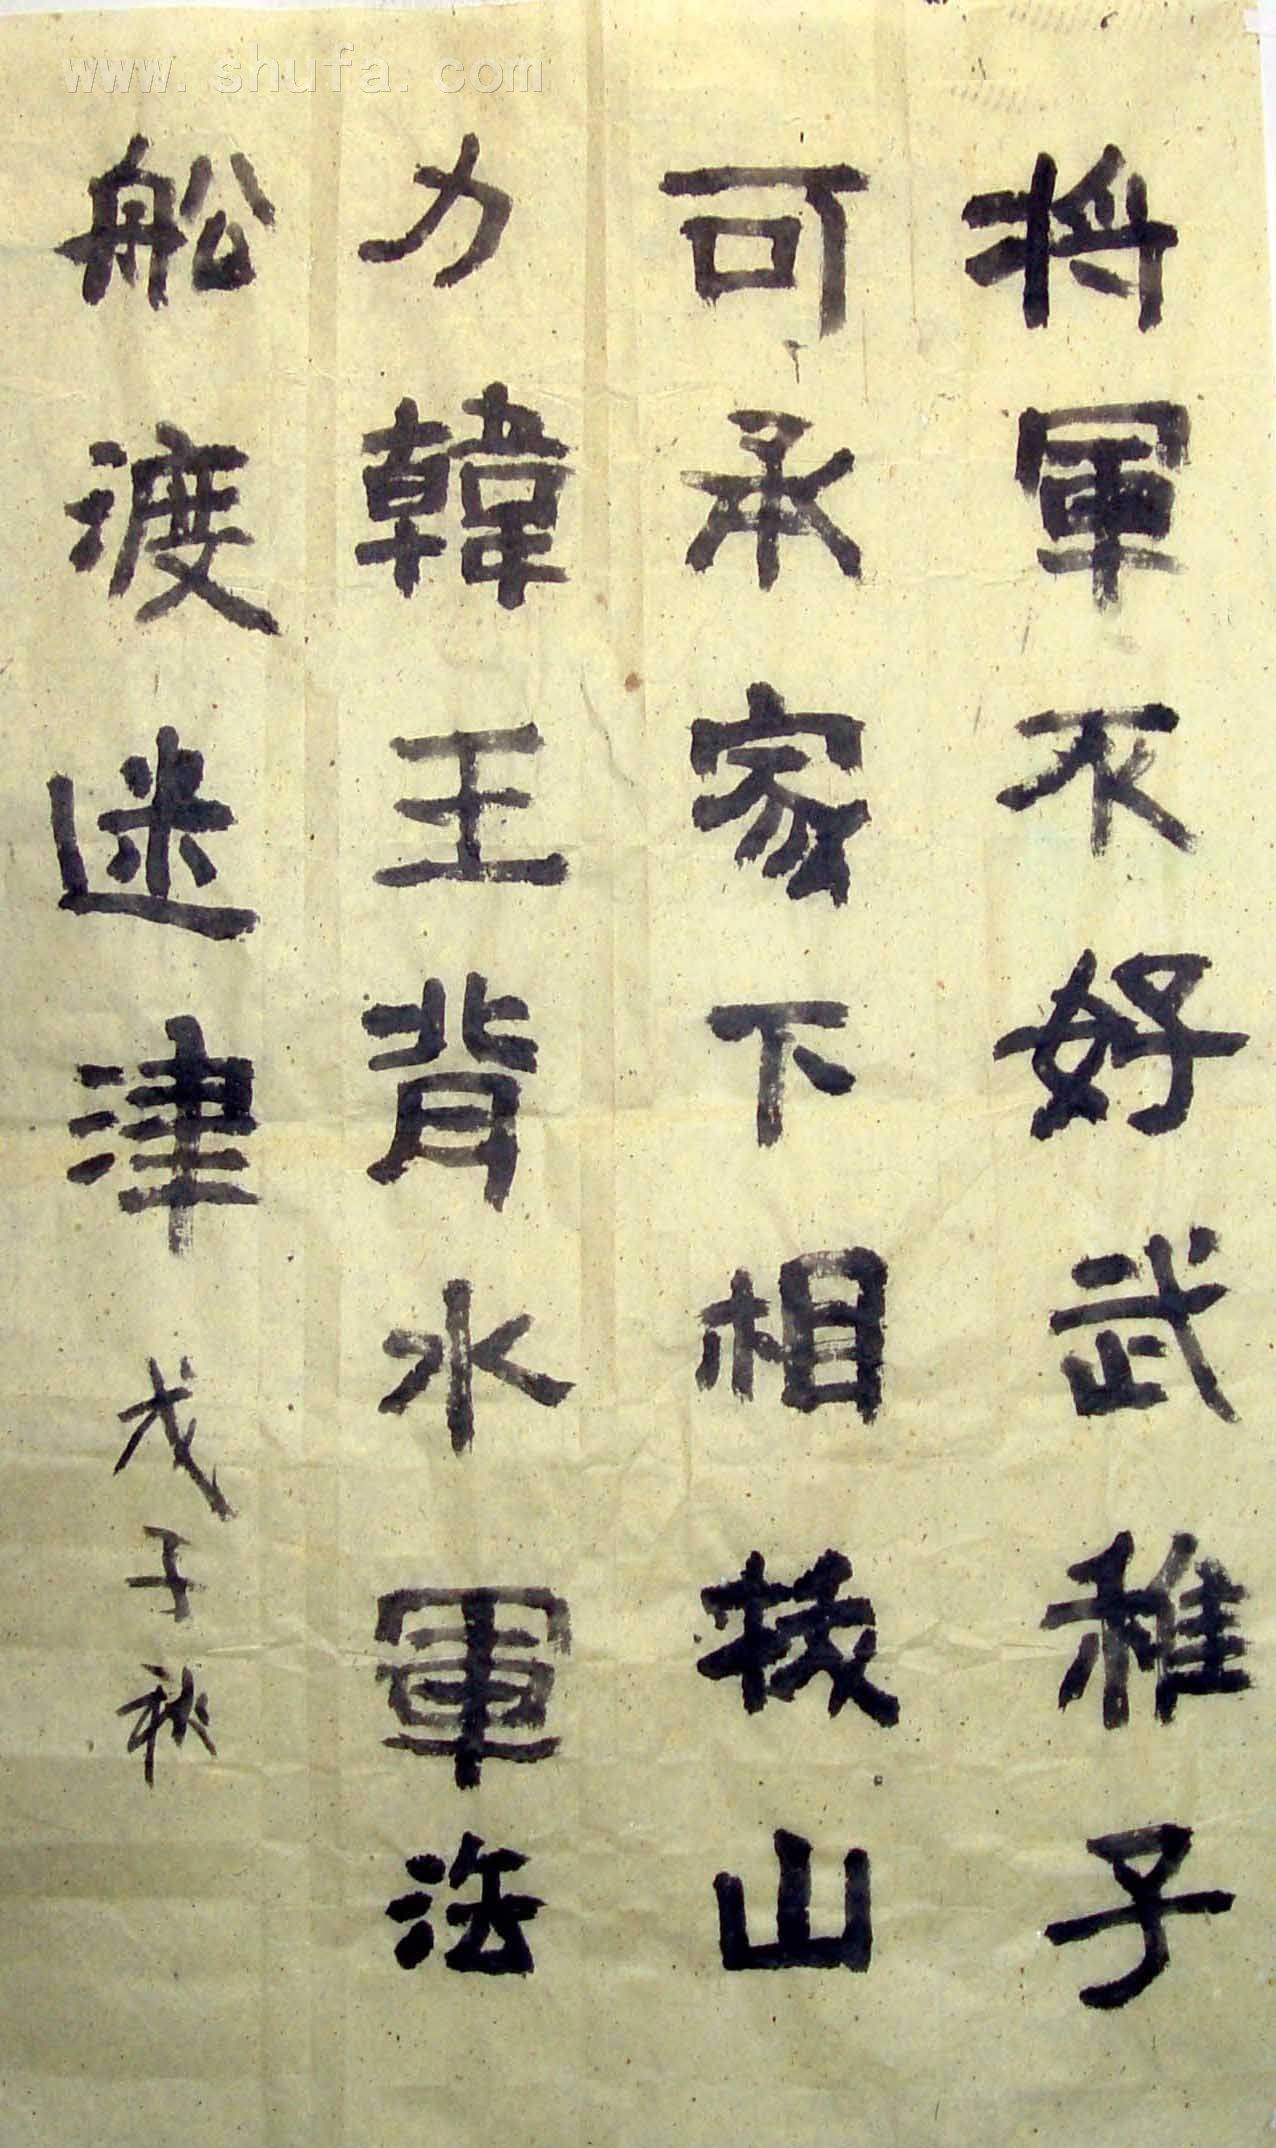 将軍不好武稚子
可承家下相拔山
力韓王背水軍法
船渡迷津 戊子秋
www.shufa.com